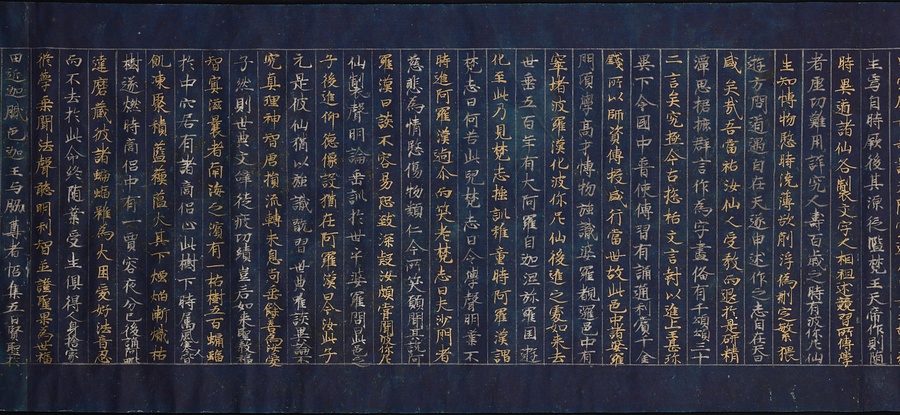 王焉自時厥後其源泛濫梵王天帝作則隨
時異道諸仙各製文字人相祖述競習所傳學
者虛功難用詳究人壽百歲之時有波你尼仙
生知博物愍時澆薄欲削浮偽刪定繁猥
遊方問道遇自在天遂申述作之志自在天曰
咸矣哉吾當祐汝仙人受教而退於是研精
潭思捃摭群言作為字書俗有千頌頌三十
二言矣究極今古總括文言封以進上王甚珍
異下令國中普使傳習有誦通利賞千金
錢所以師資傳授盛行當世故此邑中諸婆羅
門碩學高才博物強識娑羅覩邏邑中有
窣堵波羅漢化波你尼仙後進之處如來去
世垂五百年有大阿羅漢自迦濕弥羅國遊
化至此乃見梵志捶訓稚童時阿羅漢謂
梵志曰何苦此兒梵志曰令學聲明業不
時進阿羅漢逌尒而笑老梵志曰夫沙門者
慈悲為情愍傷物類仁今所笑願聞其說阿
羅漢曰談不容易恐致深疑汝頗嘗聞波你尼
仙製聲明論垂訓於世乎婆羅門曰此邑之
子後進仰德像設猶在阿羅漢曰今汝此子
即是彼仙猶以強識翫習世典唯談異論不
究真理神智唐捐流轉未息尚乘餘善為汝愛
子然則世典文辭徒疲功績豈若如來聖教福
智冥滋曩者南海之濱有一枯樹五百蝙蝠
於中穴居有諸商侶止此樹下時屬風寒人皆
飢凍聚積樵蘇蘊火其下煙焰漸熾枯
樹遂燃時商侶中有一賈客夜分已後誦阿毗
達磨藏彼諸蝙蝠雖為火困愛好法音忍
而不去於此命終隨業受生俱得人身捨家
修學乘聞法聲聰明利智並證聖果為世福
田近迦膩色迦王与脇尊者招集五百賢聖